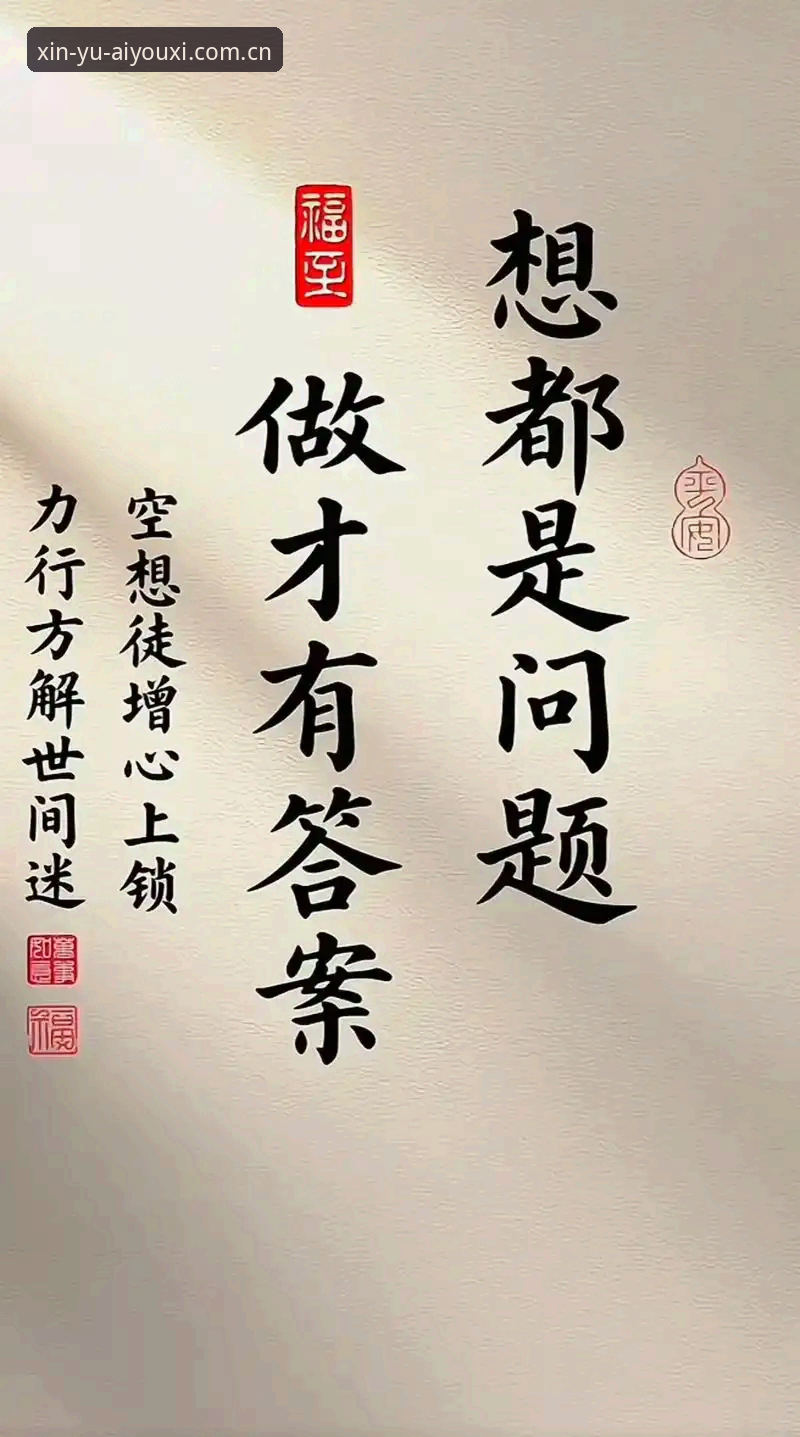 xin-yu-aiyouxi.com.cn
平安
想都是问题
福至
做才有答案
空想徒增心上锁
力行方解世间迷
萬事如意
福